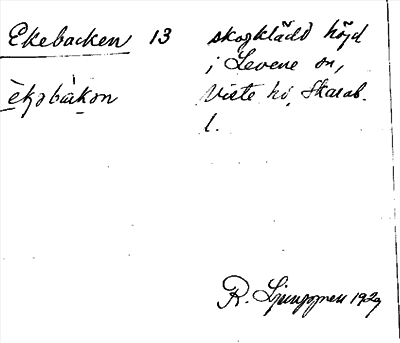 Ekebacken 13 skogklädd höjd
i Levene sn,
Viste hd, Skarab.
l.
èkəbàkən
R. Ljunggren 1929